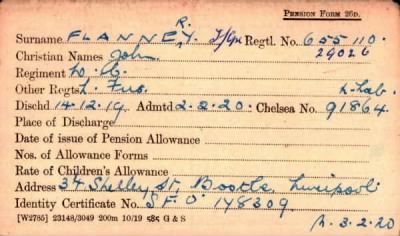 PENSION FORM 26D.
R.
Surname FLANNERY. T/Gn Regtl. No. 655110.
Christian Names John 29026
Regiment W.C.
Other Regts L. Fus. L-Lab.
Dischd 14.12.19. Admtd 2.2.20. Chelsea No. 91864.
Place of Discharge
Date of issue of Pension Allowance
Nos. of Allowance Forms
Rate of Children's Allowance
Address 34 Shelley St, Bootle, Liverpool
Identity Certificate No. S.F.O. 148309
[W2785] 23148/3049 200m 10/19 G & S
3.2.20